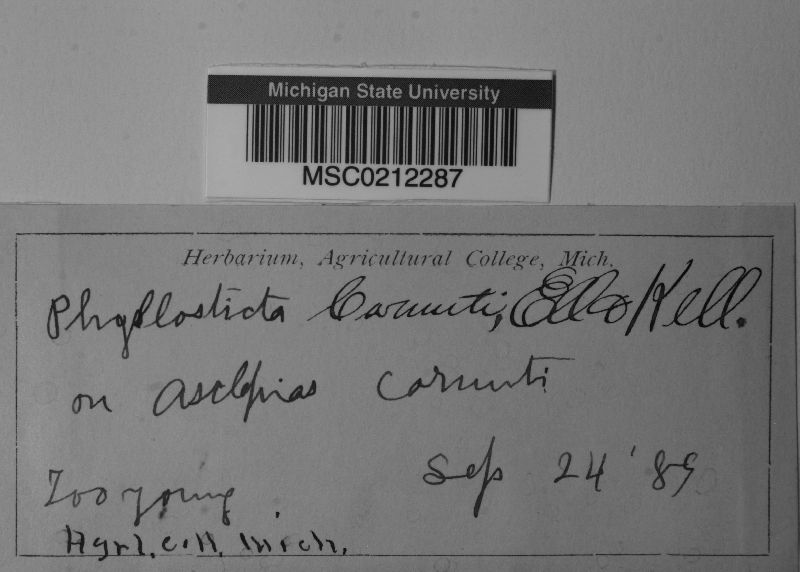 Michigan State University
MSC0212287
Herbarium, Agricultural College, Mich.
Phyllosticta Cornuti, Ell & Kell.
on Asclepias Cornuti
Sep 24 '89
Too young.
Agrl. Coll. Mich.